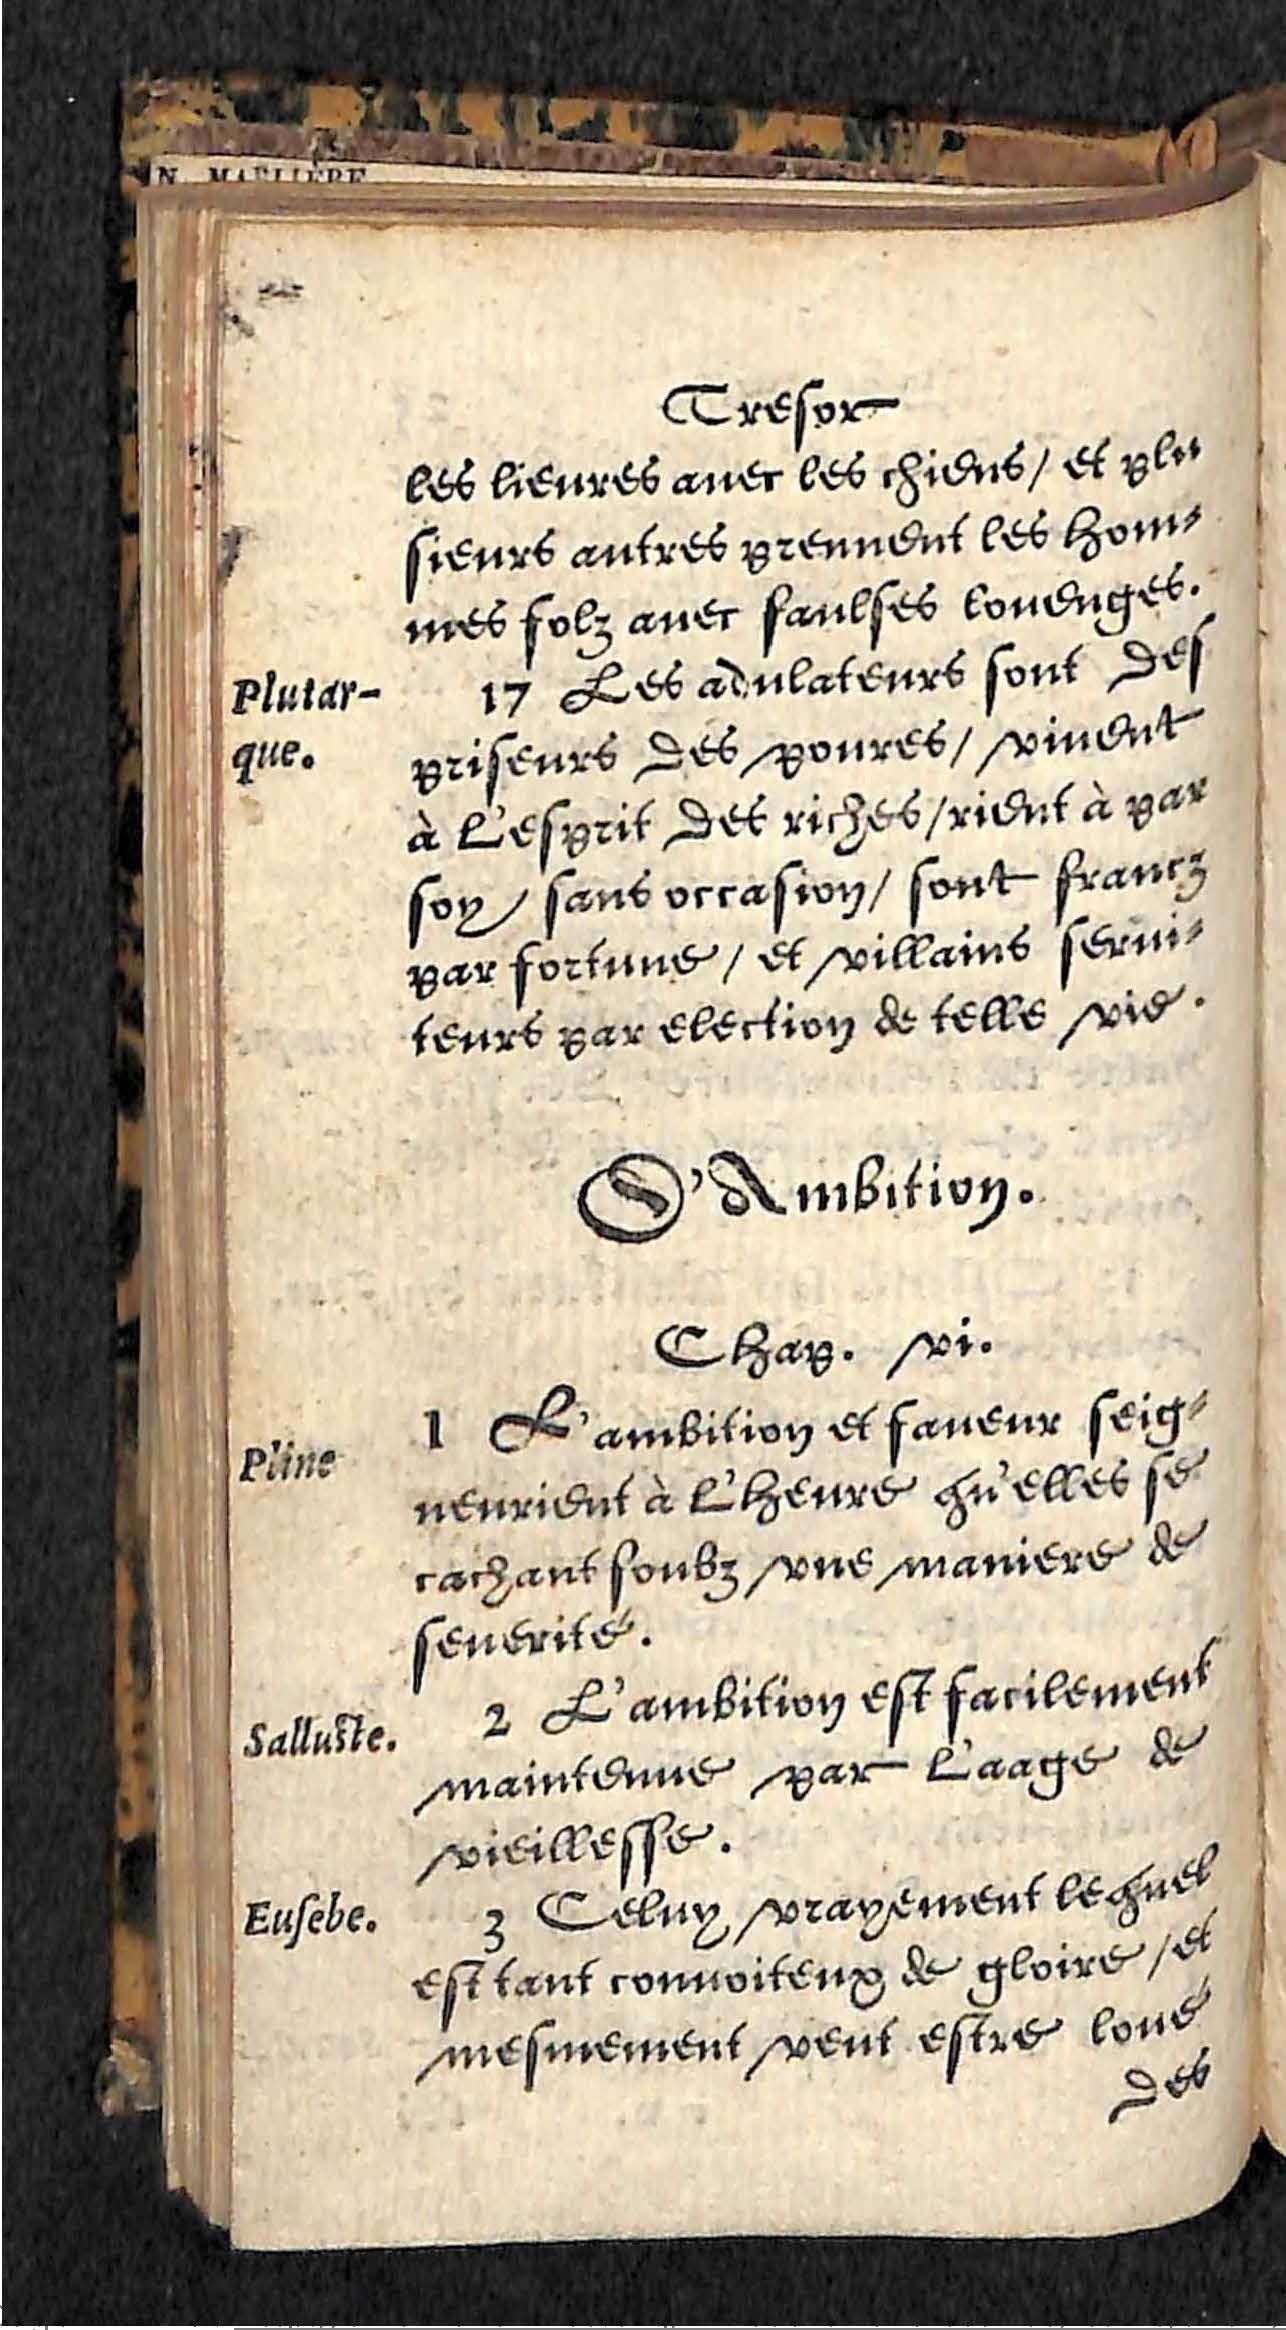 Tresor
les lieures auec les chiens/ et plu-
sieurs autres prennent les hom-
mes folz auec faulses louenges.
Plutar-
que.
17 Les adulateurs sont des
priseurs des poures/ viuent
à l'esprit des riches/ rient à par
soy/ sans occasion/ sont francz
par fortune/ et villains serui-
teurs par election de telle vie.
D'Ambition.
Chap. vi.
Pline
1 L'ambition et faueur seig-
neurient à l'heure qu'elles se
cachant soubz vne maniere de
seuerité.
Salluste.
2 L'ambition est facilement
maintenue par l'aage de
vieillesse.
Eusebe.
3 Celuy vrayement lequel
est tant conuoiteux de gloire/ et
mesmement veut estre loué
des